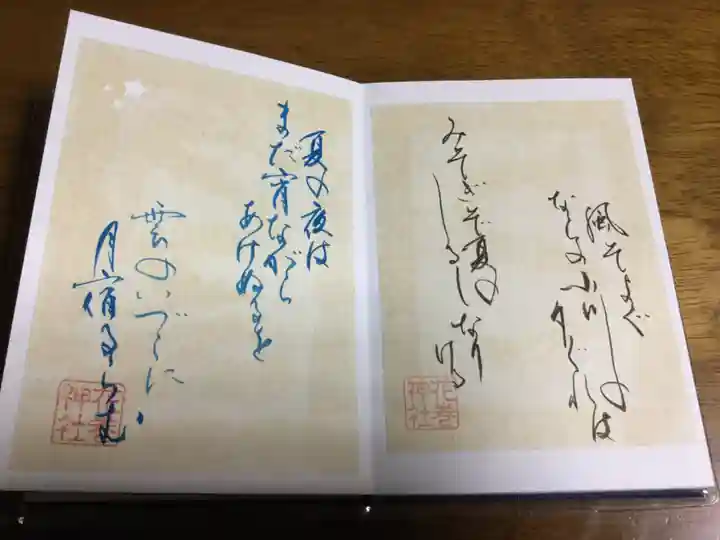 風そよぐ
ならの小川の
夕ぐれは
みそぎぞ夏の
しるし
なり
ける
神社
夏の夜は
まだ宵ながら
あけぬるを
雲のいづこに
月宿るらむ
神社